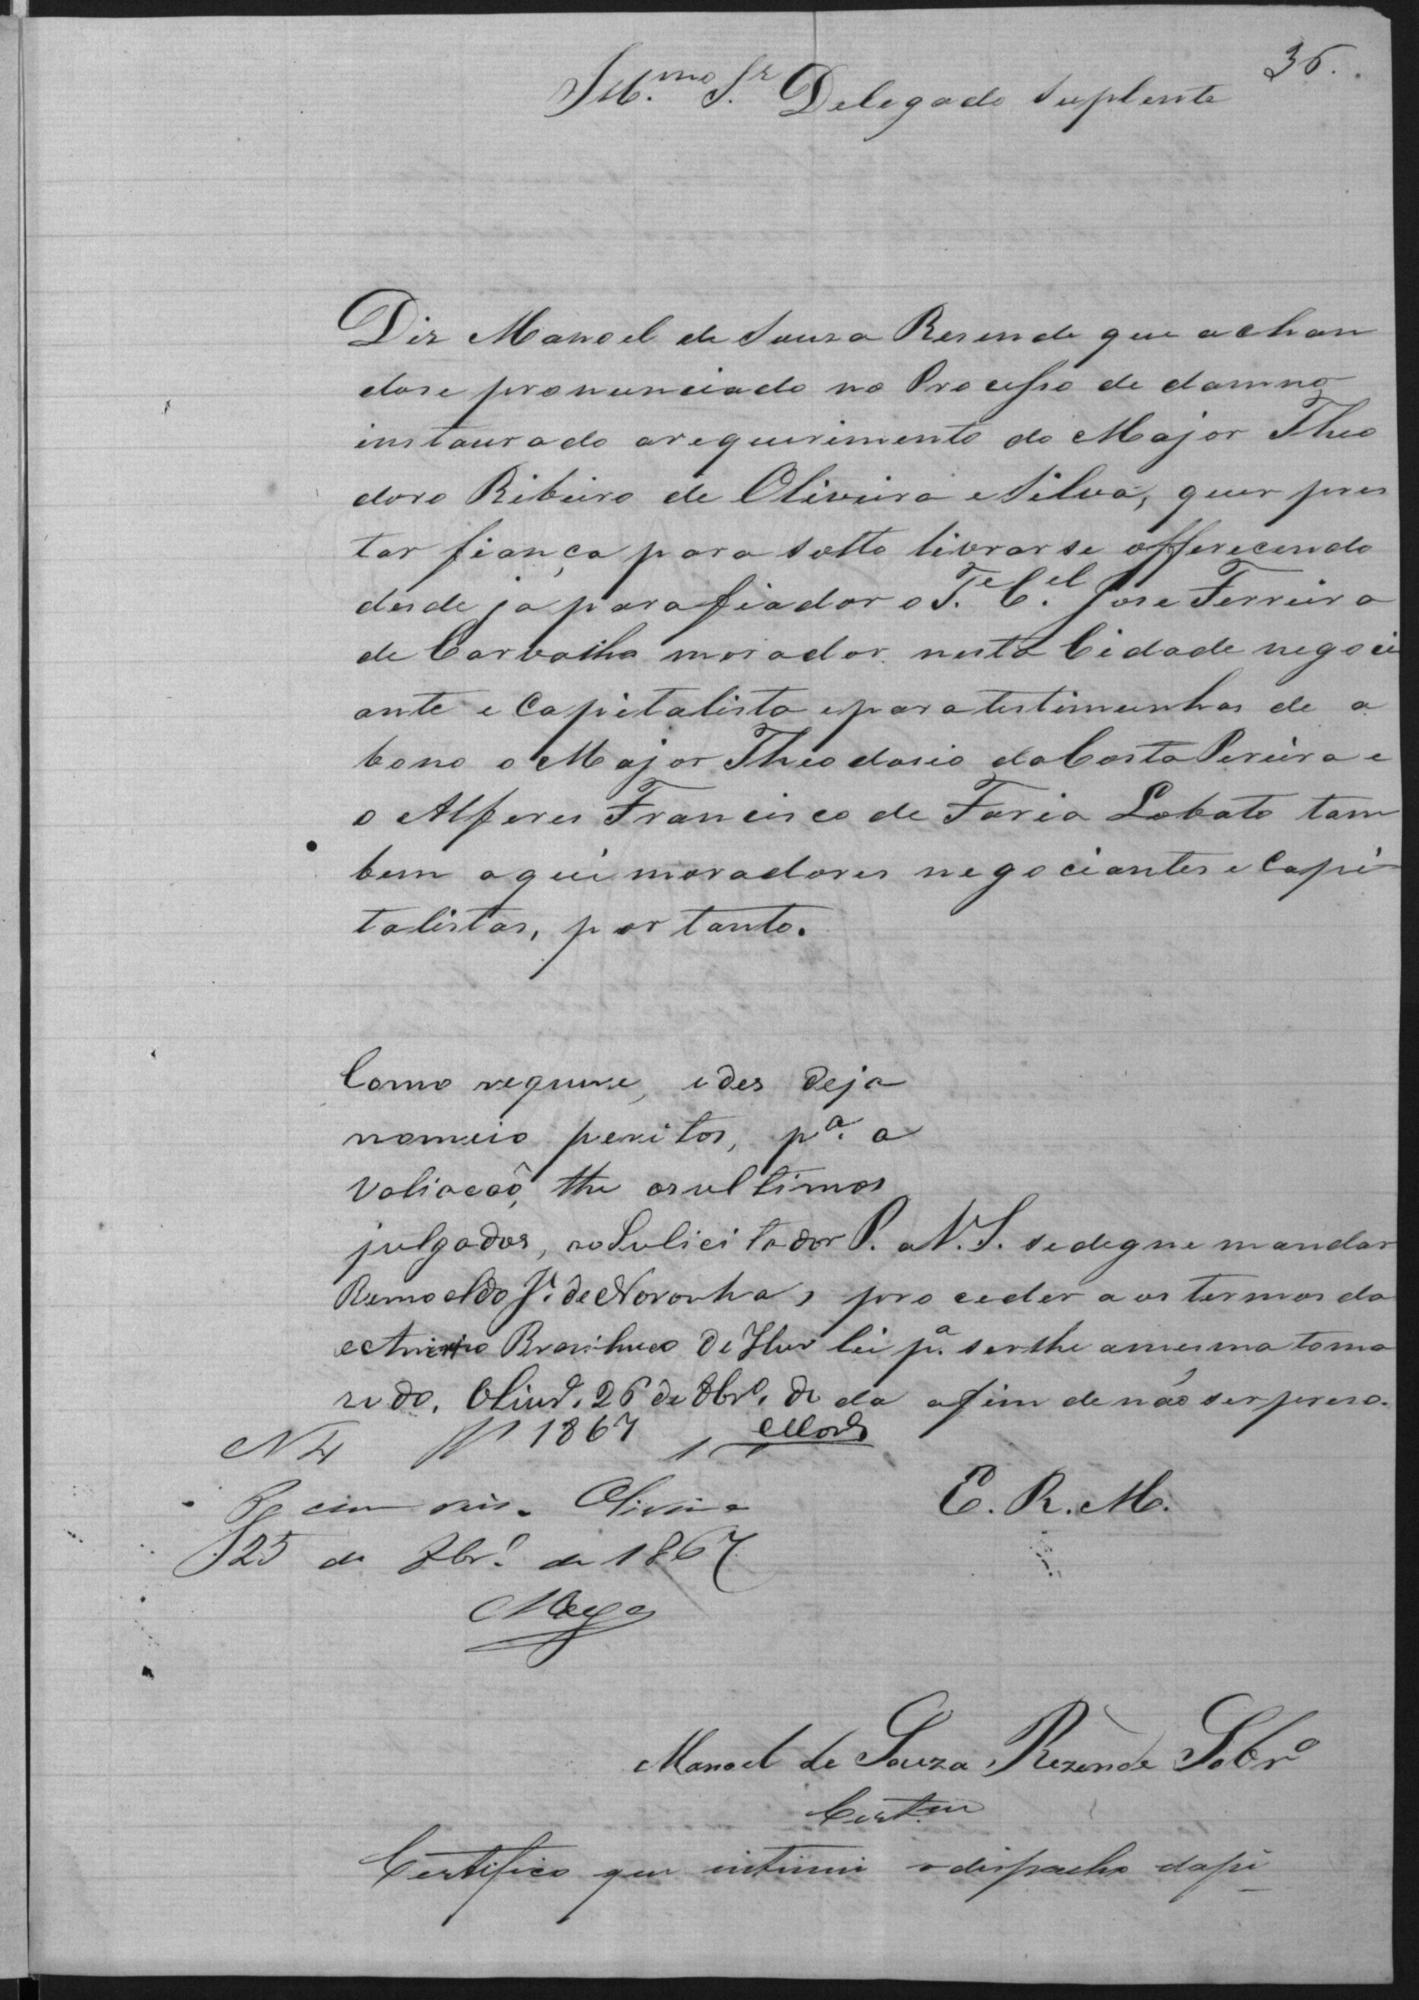 36.
Ill.mo Sr. Delegado Suplente
Diz Manoel de Souza Resende que achan
dose pronunciado no Processo de damno
instaurado arequerimento do Major Theo
doro Ribeiro de Oliveira e Silva, quer pres
tar fiança para solto livrarse offerecendo
desde ja para fiador o Te. Cel. Jose Ferreira
de Carvalho morador nesta Cidade negoci
ante e Capitalista epara testimunhas de a
bono o Major Theodosio da Costa Pereira e
o Alferes Francisco de Faria Lobato tam
bem aqui moradores negociantes e Capi
talistas, por tanto.
Como requere, e des deja
nomeio peritos, pa. a
valiação, the os ultimos
julgados, ao Sulicitador
Romoaldo Je. de Noronha,
Brasilico de
redo. Olivra. 26 de de
1867
P. a V. S. se degne mandar
proceder aos termos da
lei pa. serlhe amesma toma
da afim de não ser preso.
E. R. M.
N 4
cem reis. Oliveira
25 de 7bro. de 1867
Manoel de Souza Rezende Sobro
Certam
Certifico que intimei o dispacho da pi